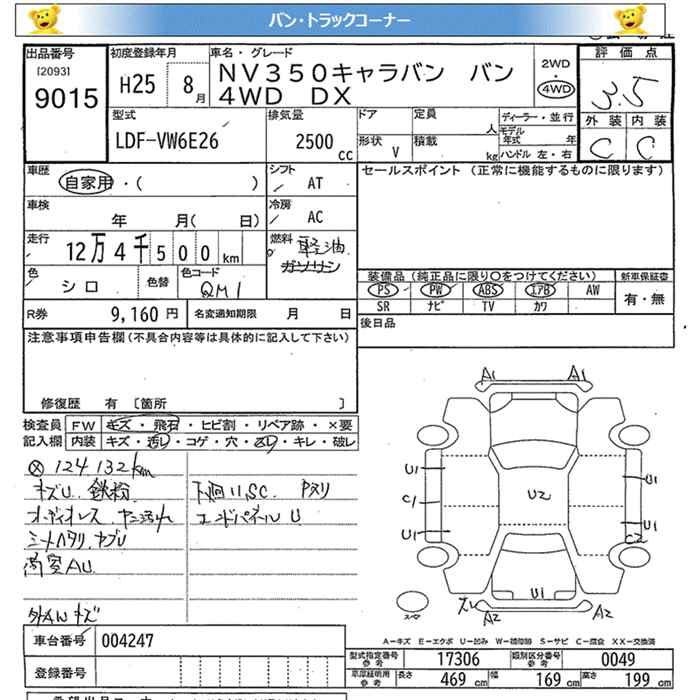 バン・トラックコーナー
出品番号 初度登録年月 車名・グレード 評価点
[2093] 9015 H25 8月 NV350キャラバン バン 2WD
4WD DX 4WD 3.5
型式 排気量 ドア 定員 ディーラー・並行 外装 内装
LDF-VW6E26 2500cc 人 モデル年式 年 C C
形状 V 積載 kg ハンドル 左・右
車歴 シフト セールスポイント (正常に機能するものに限ります)
自家用・( ) AT
車検 冷房
年 月( 日) AC
走行 燃料
12万4千500km 軽油
ガソリン
色 色替 色コード 装備品 (純正品に限り○をつけてください) 新車保証書
シロ QM1 PS PW ABS エアB AW 有・無
SR ナビ TV カワ
R券 9,160円 名変通知期限 月 日 後日品
注意事項申告欄(不具合内容等は具体的に記入して下さい)
修復歴 有 〔箇所 〕
検査員 FW キズ・飛石・ヒビ割・リペア跡・×要
記入欄 内装 キズ・汚レ・コゲ・穴・スレ・キレ・破レ
124132km
キズU 鉄粉 下廻り、SC
オーディオレス エンドパネルU
A1 A1
U1 U1
C1 U2
U1 U1
C2
U1
A2 A2
スペア
A-キズ E-エクボ U-凹み W-補修跡 S-サビ C-腐食 XX-交換済
車台番号 004247 型式指定番号 参考 17306 類別区分番号 参考 0049
登録番号 車庫証明用 参考 長さ 469cm 幅 169cm 高さ 199cm